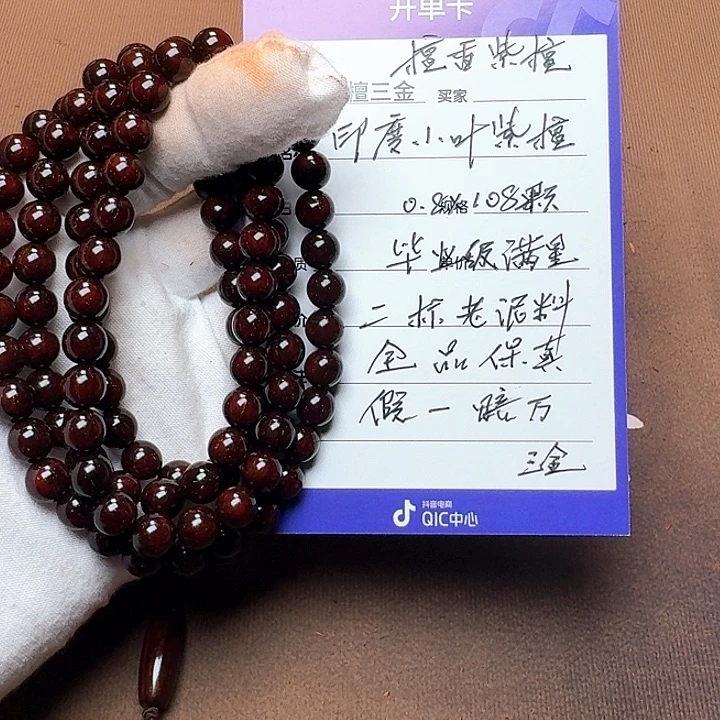 开单卡
檀香紫檀
檀三金 买家
印度小叶紫檀
0.8 规格 108颗
毕业级满星
二标老泥料
全品保真
假一赔万
三金
抖音电商
QIC中心